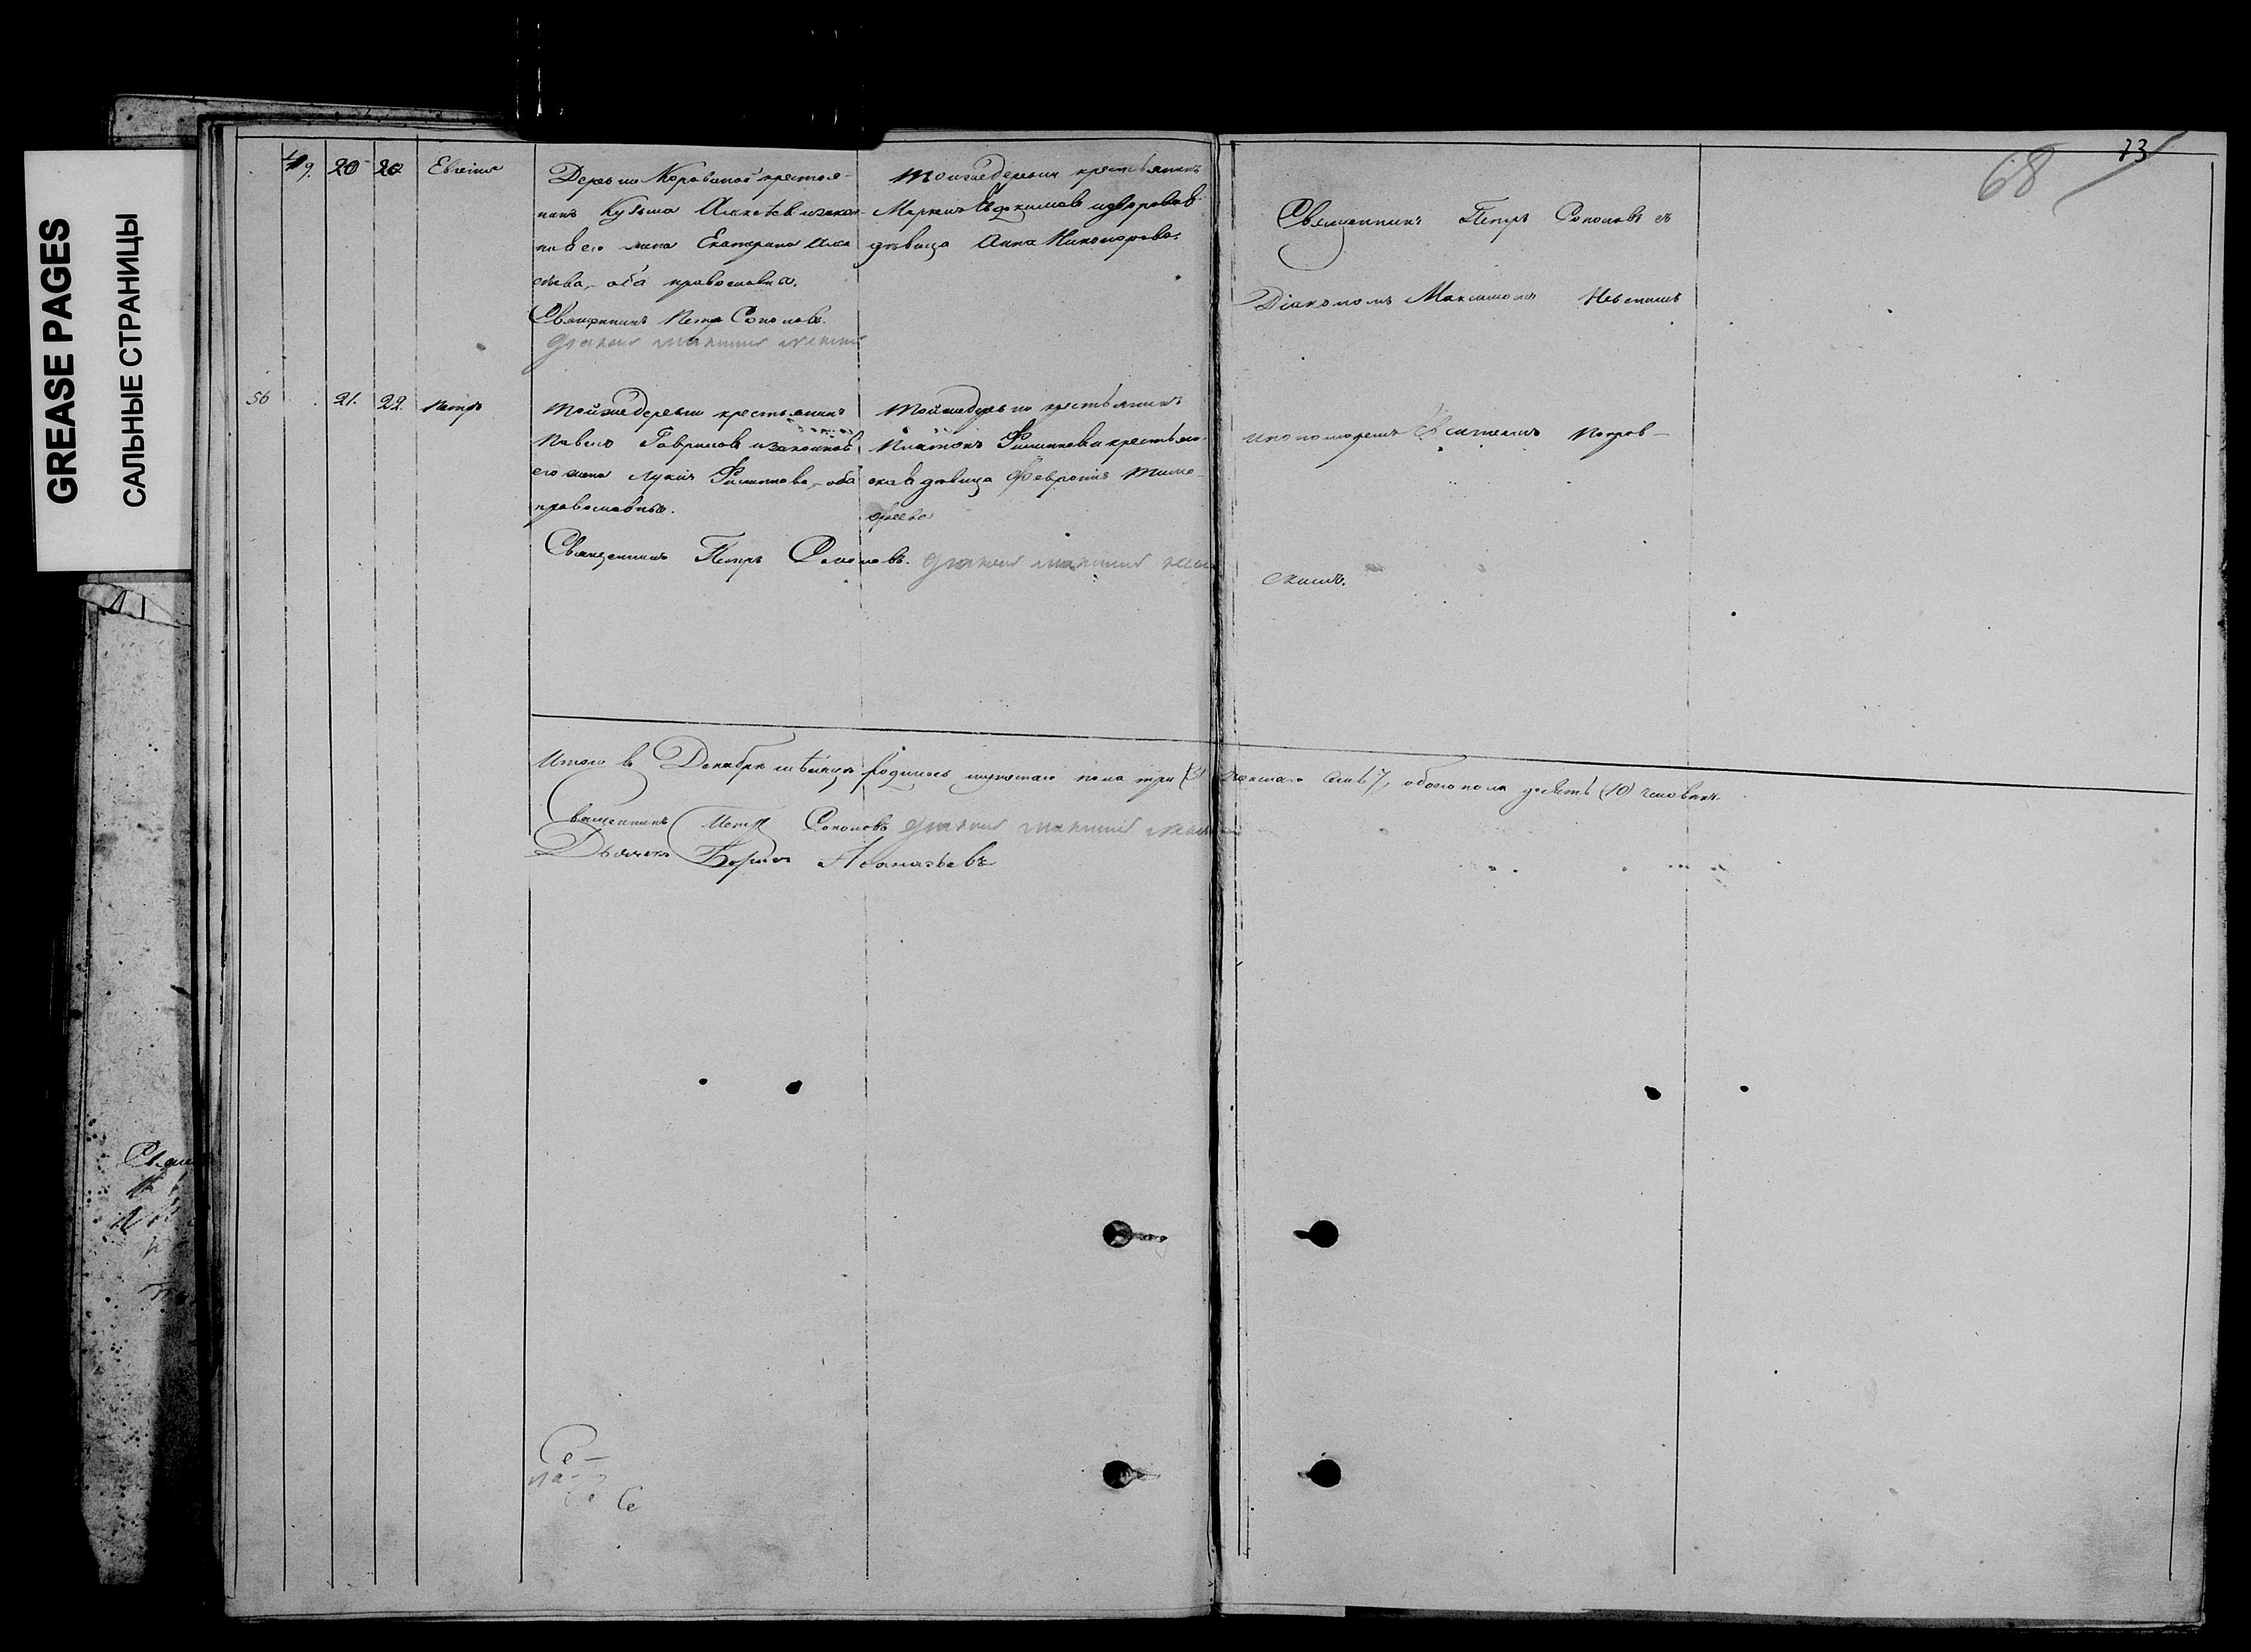 GREASE PAGES
САЛЬНЫЕ СТРАНИЦЫ
68
73
49. 20 20 Евгения
Деревни Коровиной крестья-
нинъ Кузьма Алексѣевъ и закон-
ная его жена Екатерина Алек
сѣева, оба православные.
Священникъ Петръ Соколовъ.
Тойже деревни крестьянинъ
Маркелъ Евдокимовъ и дворовая
дѣвица Анна Никифорова.
Священникъ Петръ Соколовъ съ
Діакономъ Максимомъ
56 21. 22. Петръ
Тойже деревни крестьянинъ
Павелъ Гавриловъ и законная
его жена Лукія Филиппова, оба
православные.
Священникъ Петръ Соколовъ.
Тойже деревни крестьянинъ
Платонъ Филипповъ и крестьян-
ская дѣвица Февронія Тимо-
феева
и пономаремъ Петров-
скимъ.
Итого в Декабрѣ мѣсяцѣ родилось мужескаго пола три (3) женскаго семь 7, обоего пола десять (10) человѣкъ.
Священникъ Петръ Соколовъ
Дьячекъ Борисъ Аѳанасьевъ